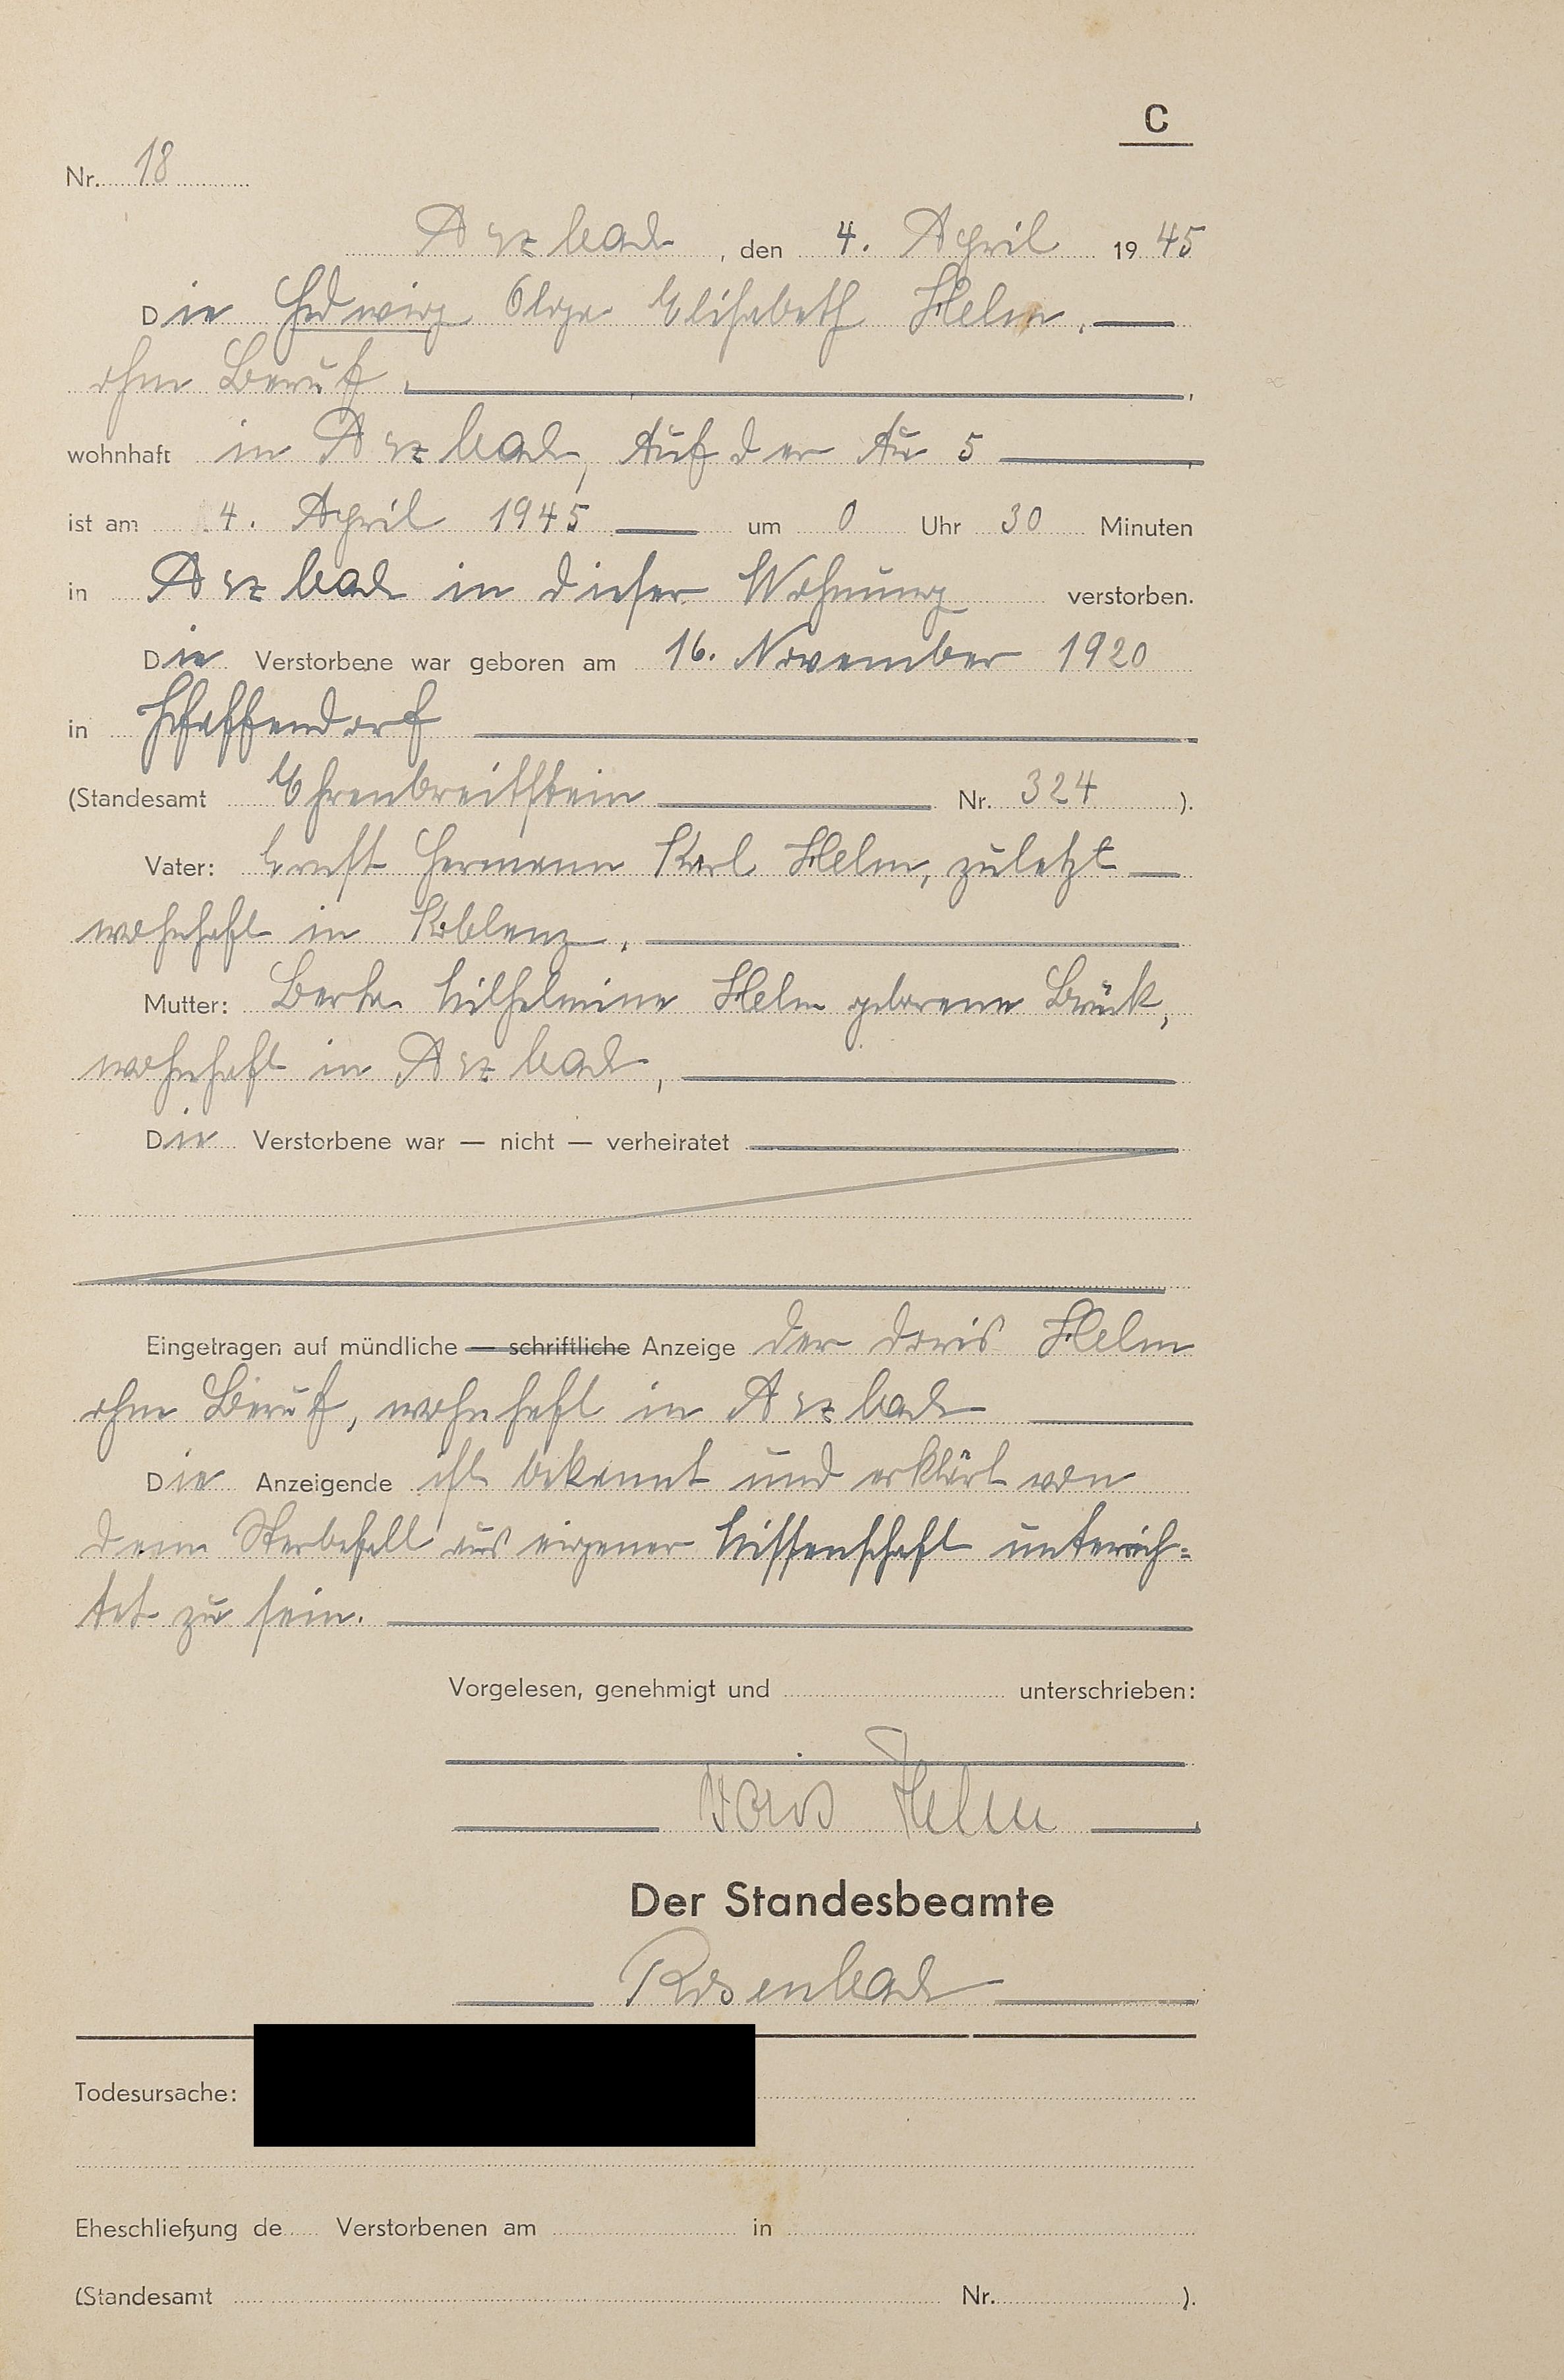 C
Nr. 18
Arzbach, den 4. April 1945
Die Hedwig Olga Elisabeth Helm,
ohne Beruf,
wohnhaft in Arzbach, Auf der Au 5
ist am 4. April 1945 um 0 Uhr 30 Minuten
in Arzbach in dieser Wohnung verstorben.
Die Verstorbene war geboren am 16. November 1920
in Pfaffendorf
(Standesamt Ehrenbreitstein Nr. 324 ).
Vater: Ernst Hermann Karl Helm, zuletzt
wohnhaft in Koblenz.
Mutter: Berta Wilhelmine Helm geborene Brück,
wohnhaft in Arzbach,
Die Verstorbene war — nicht — verheiratet
Eingetragen auf mündliche — schriftliche Anzeige der Doris Helm
ohne Beruf, wohnhaft in Arzbach
Die Anzeigende ist bekannt und erklärt von
dem Sterbefall aus eigener Wissenschaft unterich=
tet zu sein.
Vorgelesen, genehmigt und unterschrieben:
Doris Helm
Der Standesbeamte
Rosenbach
Todesursache:
Eheschließung de Verstorbenen am in
(Standesamt Nr. ).